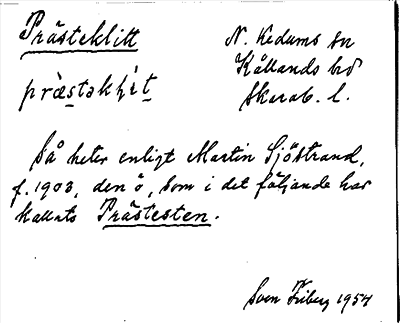 Prästeklitt
N. Kedums sn
Kållands hd
Skarab. l.
Så heter enligt Martin Sjöstrand,
f. 1903, den ö, som i det följande har
kallats Prästesten.
Sven Friberg 1954